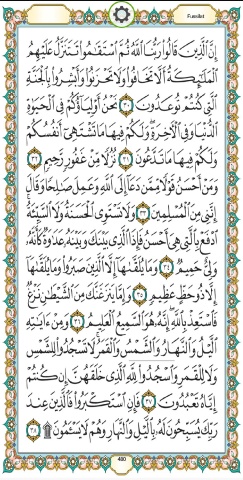 Fussilat
إِنَّ ٱلَّذِينَ قَالُوا۟ رَبُّنَا ٱللَّهُ ثُمَّ ٱسْتَقَٰمُوا۟ تَتَنَزَّلُ عَلَيْهِمُ
ٱلْمَلَٰٓئِكَةُ أَلَّا تَخَافُوا۟ وَلَا تَحْزَنُوا۟ وَأَبْشِرُوا۟ بِٱلْجَنَّةِ
ٱلَّتِى كُنتُمْ تُوعَدُونَ ٣٠ نَحْنُ أَوْلِيَآؤُكُمْ فِى ٱلْحَيَوٰةِ
ٱلدُّنْيَا وَفِى ٱلْءَاخِرَةِ ۖ وَلَكُمْ فِيهَا مَا تَشْتَهِىٓ أَنفُسُكُمْ
وَلَكُمْ فِيهَا مَا تَدَّعُونَ ٣١ نُزُلًا مِّنْ غَفُورٍ رَّحِيمٍ ٣٢
وَمَنْ أَحْسَنُ قَوْلًا مِّمَّن دَعَآ إِلَى ٱللَّهِ وَعَمِلَ صَٰلِحًا وَقَالَ
إِنَّنِى مِنَ ٱلْمُسْلِمِينَ ٣٣ وَلَا تَسْتَوِى ٱلْحَسَنَةُ وَلَا ٱلسَّيِّئَةُ ۚ
ٱدْفَعْ بِٱلَّتِى هِىَ أَحْسَنُ فَإِذَا ٱلَّذِى بَيْنَكَ وَبَيْنَهُۥ عَدَٰوَةٌ كَأَنَّهُۥ
وَلِىٌّ حَمِيمٌ ٣٤ وَمَا يُلَقَّىٰهَآ إِلَّا ٱلَّذِينَ صَبَرُوا۟ وَمَا يُلَقَّىٰهَآ
إِلَّا ذُو حَظٍّ عَظِيمٍ ٣٥ وَإِمَّا يَنزَغَنَّكَ مِنَ ٱلشَّيْطَٰنِ نَزْغٌ
فَٱسْتَعِذْ بِٱللَّهِ ۖ إِنَّهُۥ هُوَ ٱلسَّمِيعُ ٱلْعَلِيمُ ٣٦ وَمِنْ ءَايَٰتِهِ
ٱلَّيْلُ وَٱلنَّهَارُ وَٱلشَّمْسُ وَٱلْقَمَرُ ۚ لَا تَسْجُدُوا۟ لِلشَّمْسِ
وَلَا لِلْقَمَرِ وَٱسْجُدُوا۟ لِلَّهِ ٱلَّذِى خَلَقَهُنَّ إِن كُنتُمْ
إِيَّاهُ تَعْبُدُونَ ٣٧ فَإِنِ ٱسْتَكْبَرُوا۟ فَٱلَّذِينَ عِندَ
رَبِّكَ يُسَبِّحُونَ لَهُۥ بِٱلَّيْلِ وَٱلنَّهَارِ وَهُمْ لَا يَسْـَٔمُونَ ۩ ٣٨
480